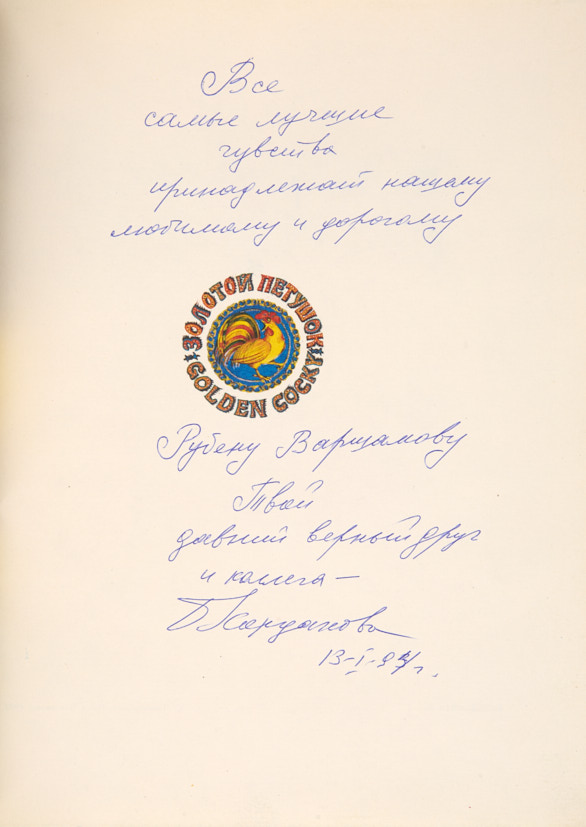 Все
самые лучшие
чувства
принадлежат нашему
любимому и дорогому
ЗОЛОТОЙ ПЕТУШОК
GOLDEN COCKY
Рубену Варшамову
Твой
давний верный друг
и коллега —
Б Карданова
13-I-94 г.